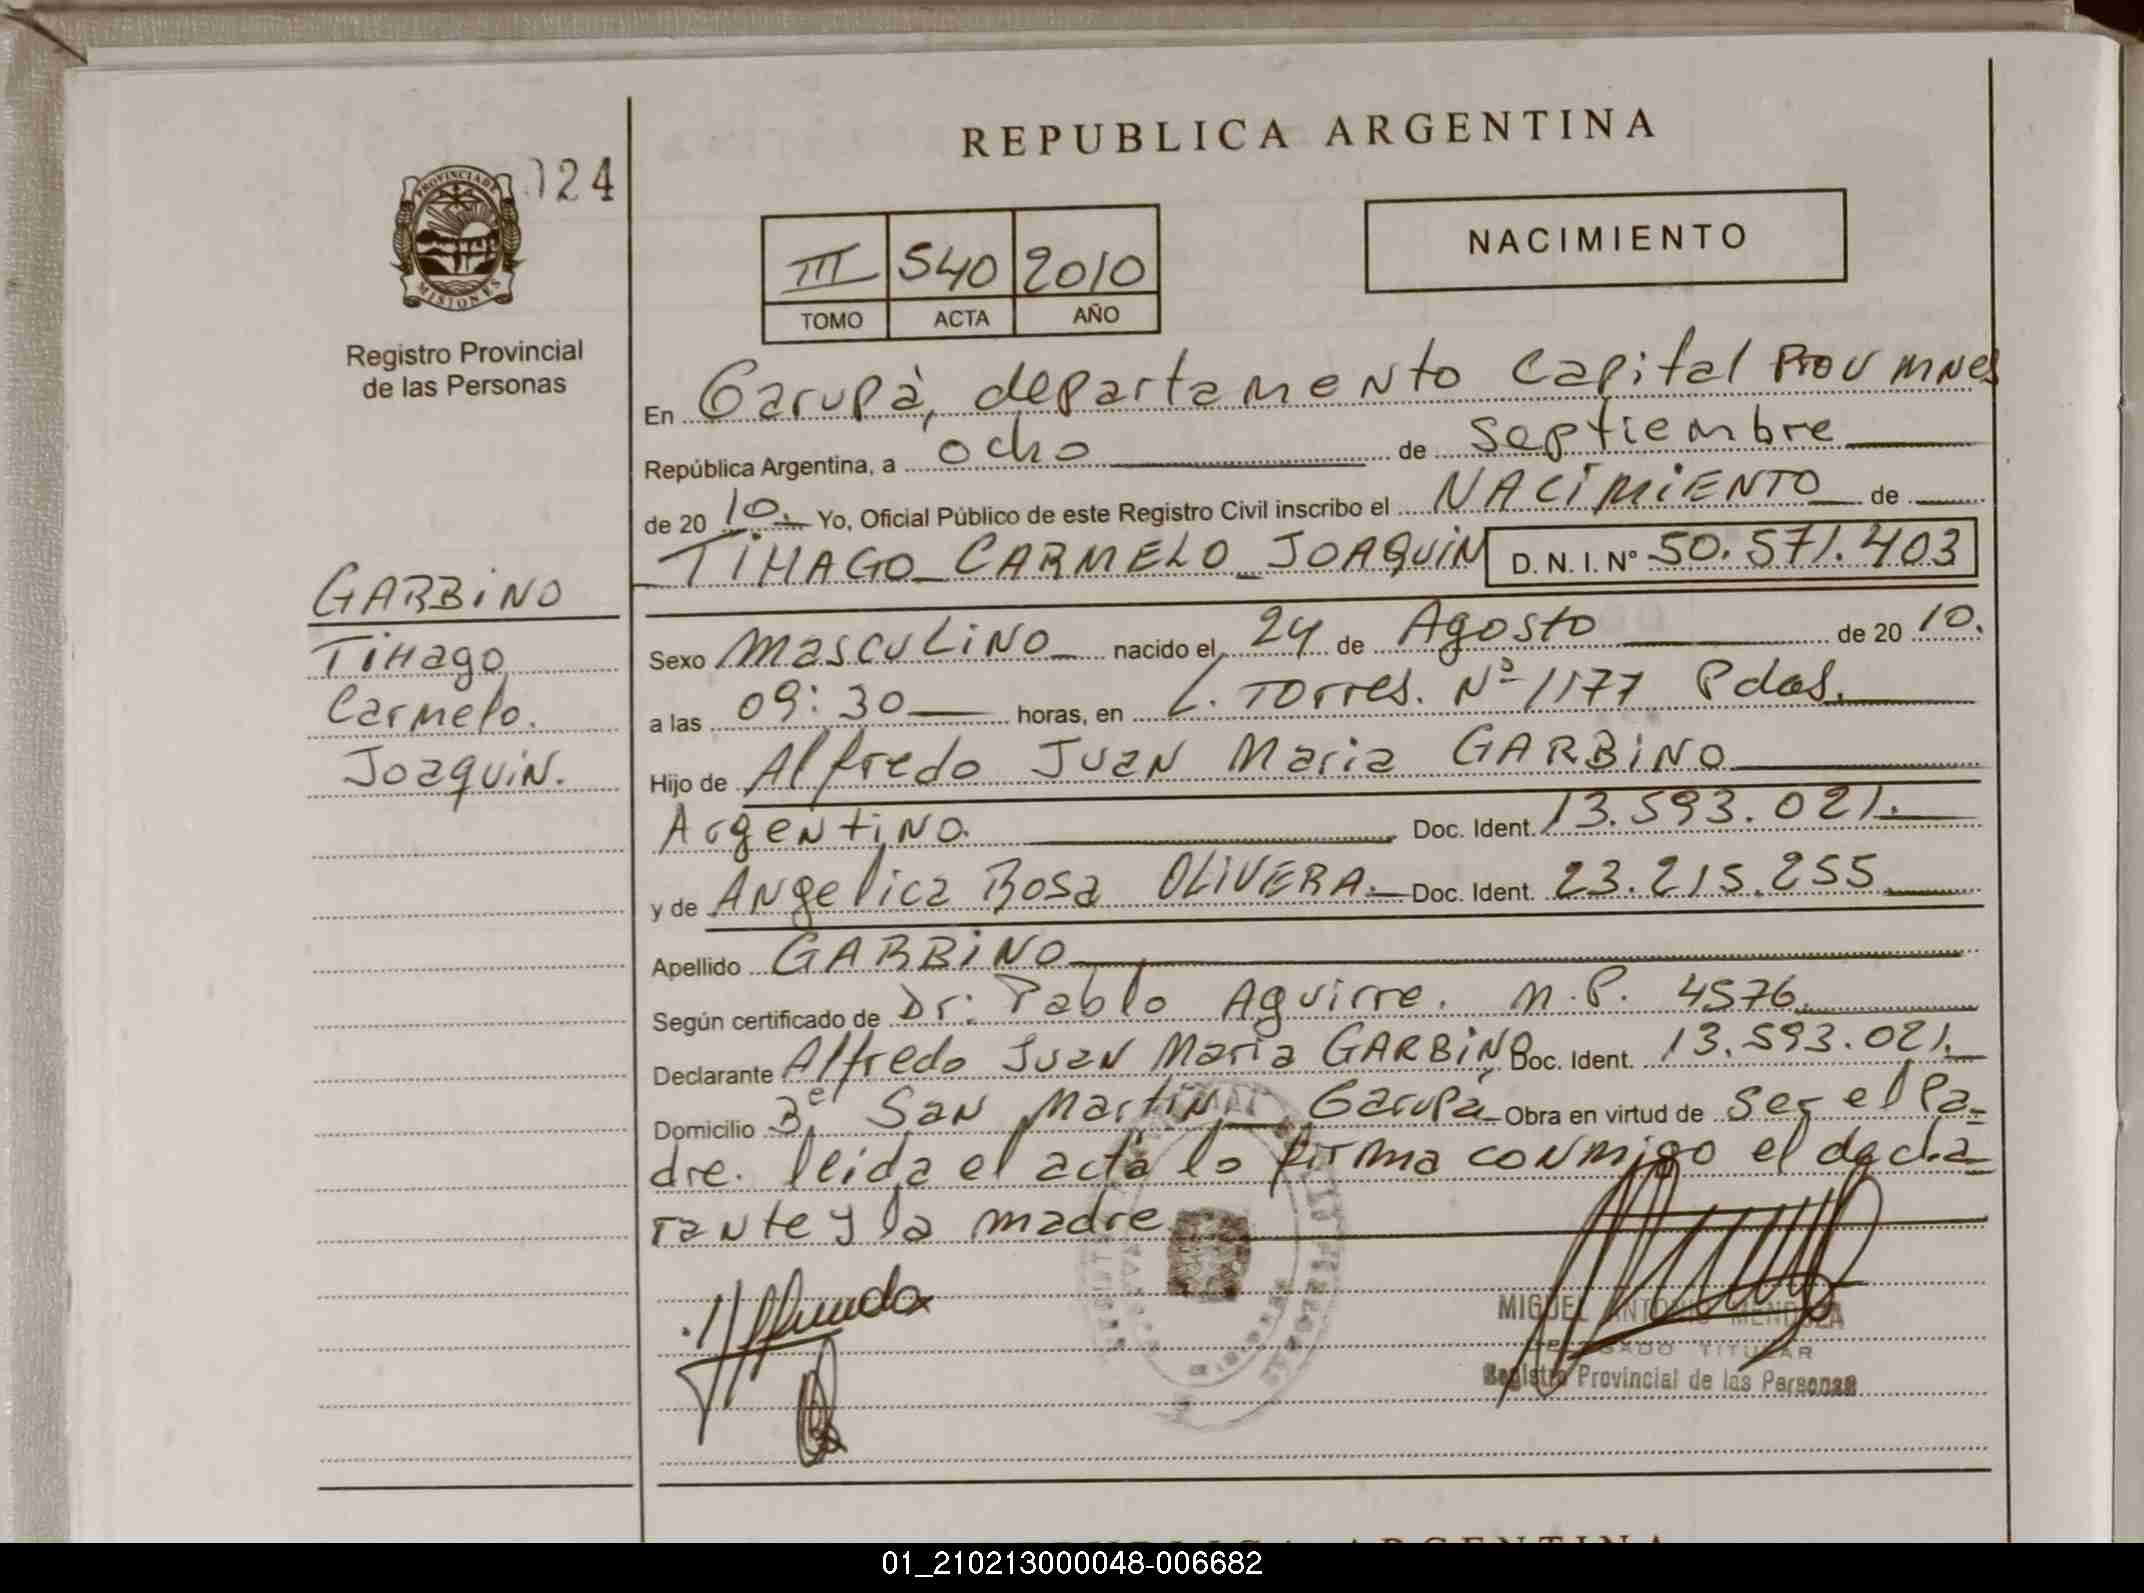 REPUBLICA ARGENTINA
124
PROVINCIA DE
MISIONES
Registro Provincial
de las Personas
III 540 2010
TOMO ACTA AÑO
NACIMIENTO
En Garupà, departamento Capital Prov Mnes
República Argentina, a ocho de septiembre
de 20 10. Yo, Oficial Público de este Registro Civil inscribo el NACIMIENTO de
TIHAGO CARMELO JOAQUIN D. N. I. N° 50.571.403
GARBINO
Tihago
Carmelo.
Joaquin.
Sexo Masculino nacido el 24 de Agosto de 20 10.
a las 09:30 horas, en L. Torres. Nº 1177 Pdas.
Hijo de Alfredo Juan Maria GARBINO
Argentino. Doc. Ident. 13.593.021.
y de Angelica Rosa OLIVERA. Doc. Ident. 23.215.255
Apellido GARBINO
Según certificado de Dr: Pablo Aguirre. M.P. 4576.
Declarante Alfredo Juan Maria GARBINO Doc. Ident. 13.593.021.
Domicilio Bº San Martin Garupá Obra en virtud de ser el Pa-
dre. lleida el acta lo firma conmigo el decla-
rante y la madre
MIGUEL ANTONIO MENDOZA
DELEGADO TITULAR
Registro Provincial de las Personas
REPUBLICA ARGENTINA
01_210213000048-006682